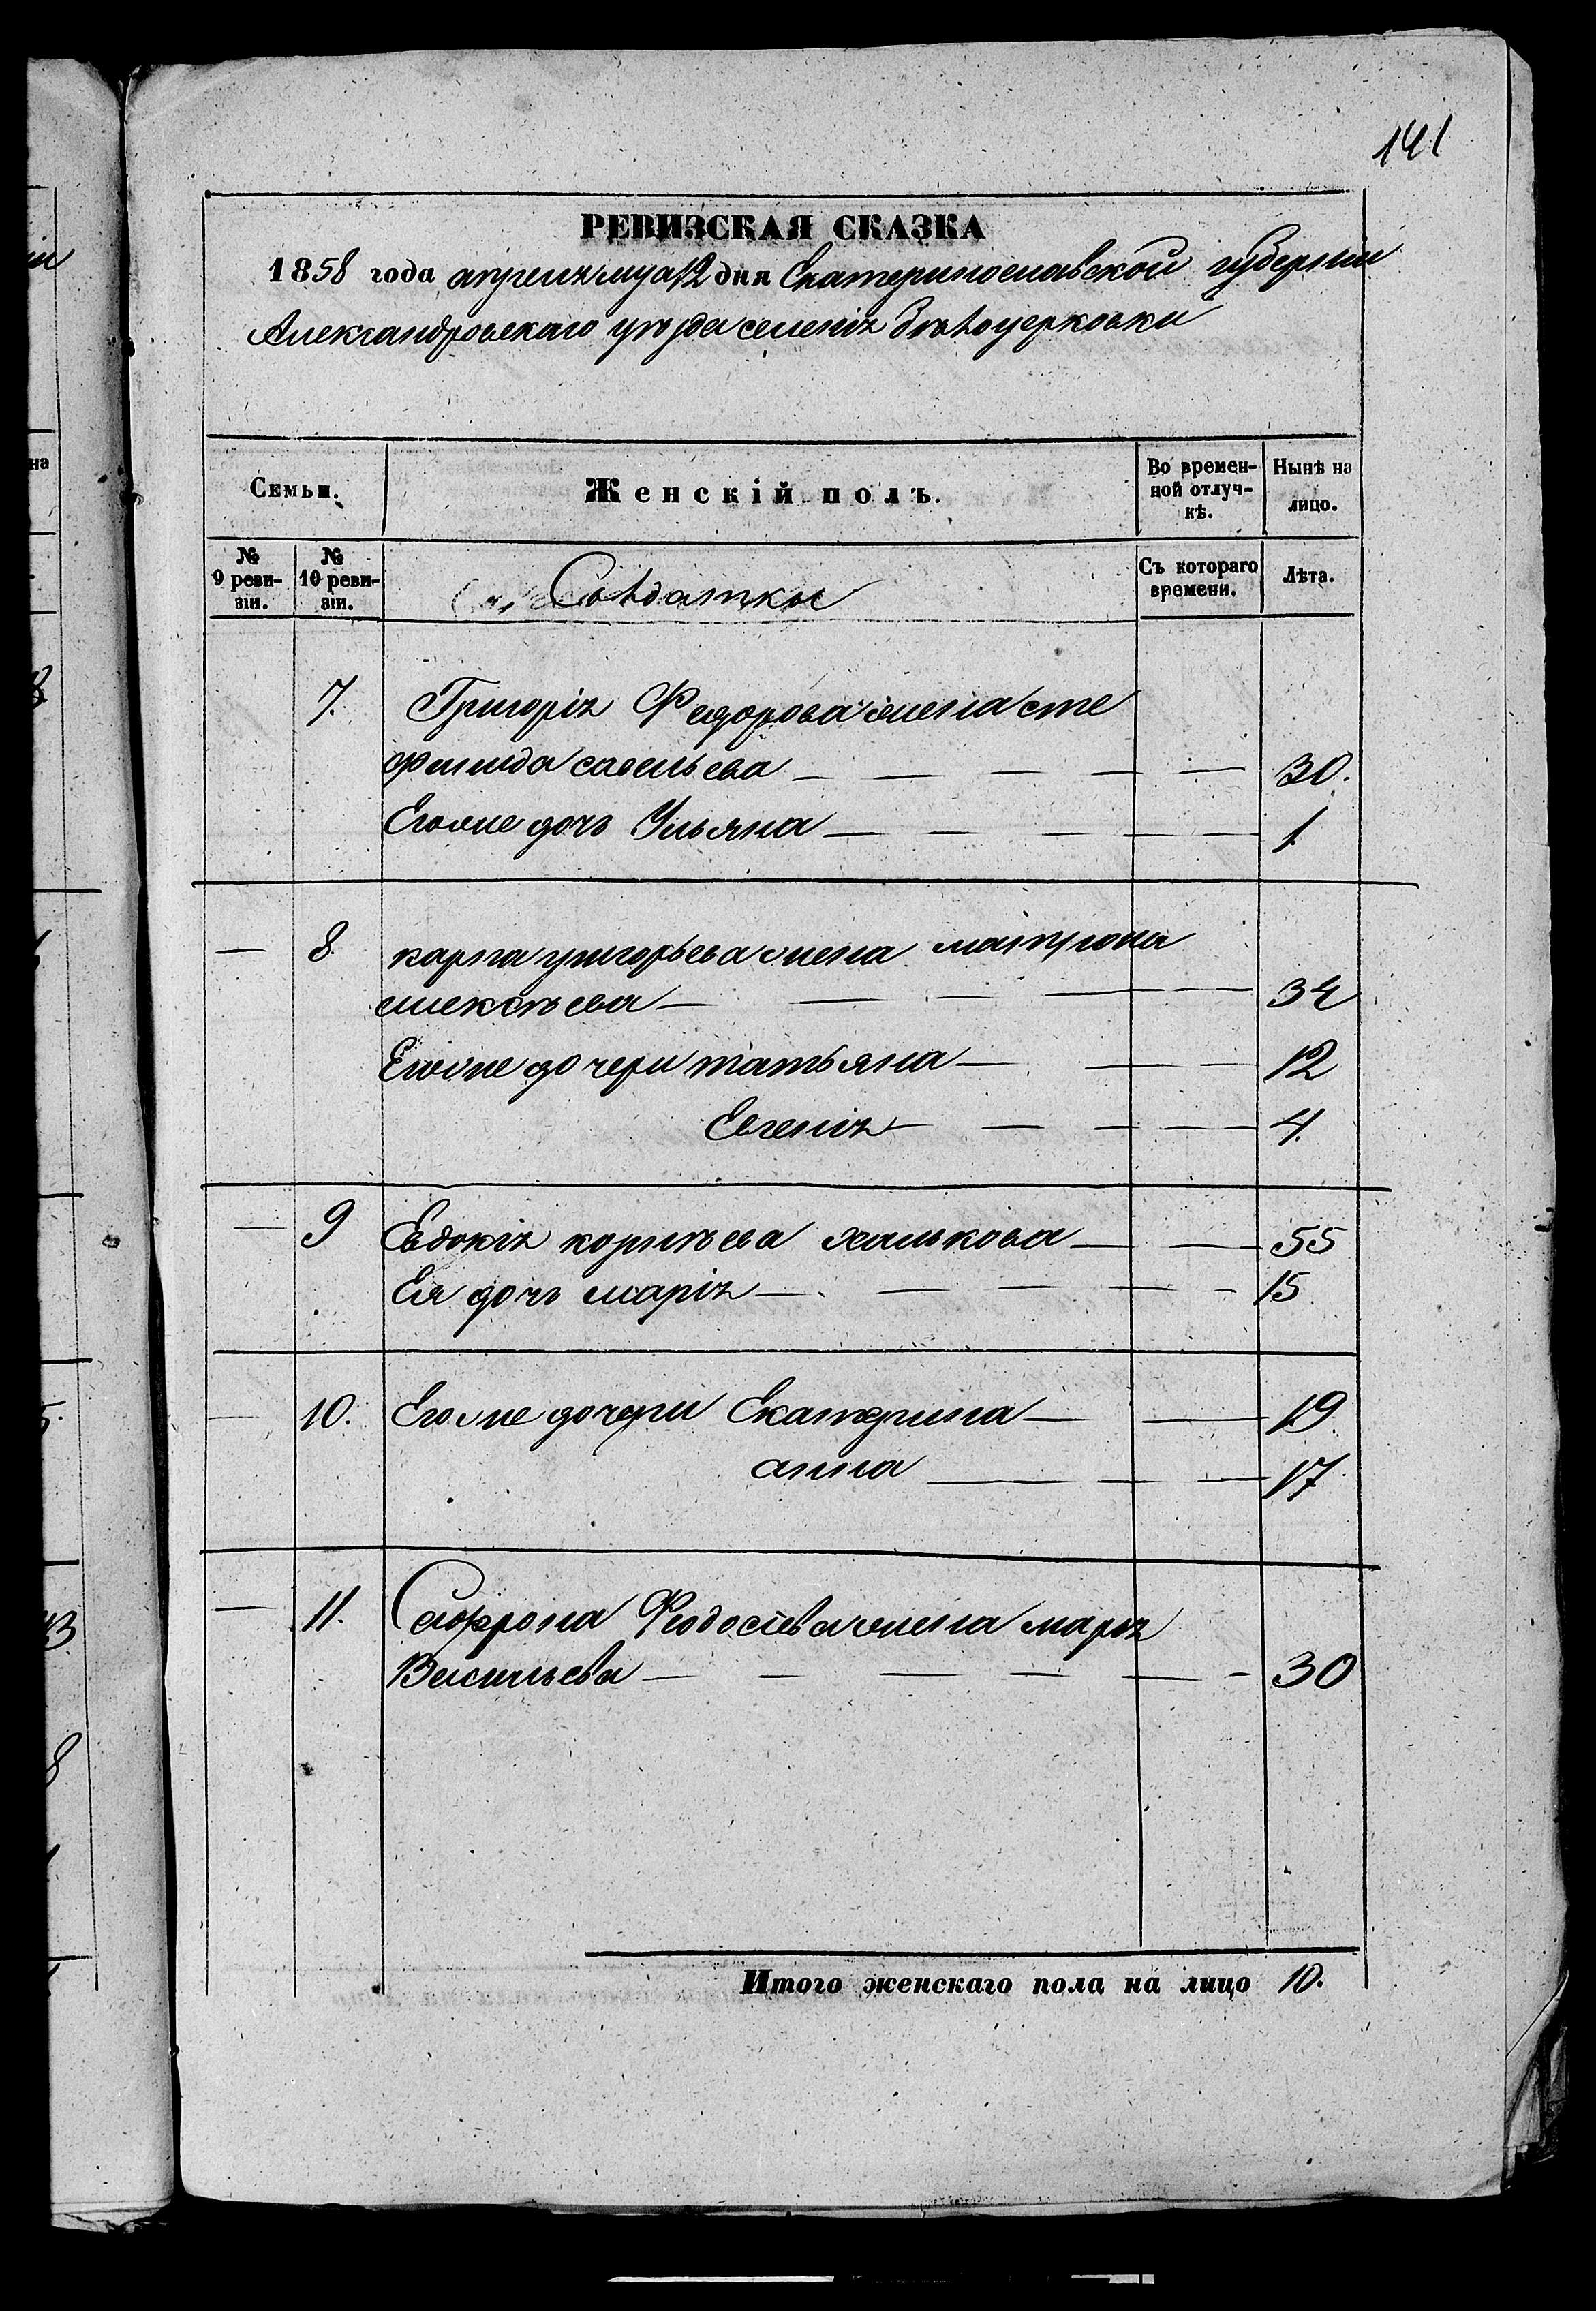 141
РЕВИЗСКАЯ СКАЗКА
1858 года апреля мца 12 дня Екатеринославской губернии
Александровскаго уѣзда селенія бѣлоцерковки
Семьи.
Женскій полъ.
Во времен-
ной отлуч-
кѣ.
Нынѣ на
лицо.
№
9 реви-
зіи.
№
10 реви-
зіи.
Солдатки
Съ котораго
времени.
Лѣта.
7. Григорія Федорова жена сте
фанида савельева 30.
Егоже дочь Ульяна 1
— 8 карпа григорьева жена матрона
алексѣева 34
Егоже дочери татьяна 12
Евгенія 4.
— 9 Евдокія корнѣева 55
Ея дочь марія 15
— 10. Егоже дочери Екатерина 19
анна 17
— 11. Софрона Феодосіева жена марія
Васильева 30
Итого женскаго пола на лицо 10.